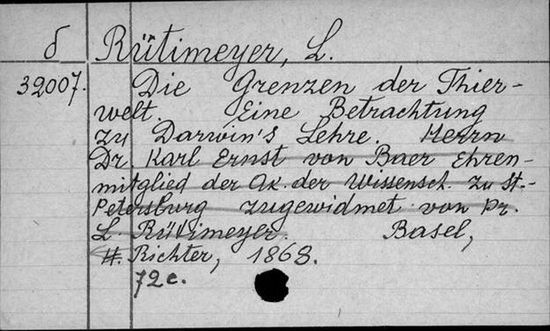 б Rütimeyer, L.
32007. Die Grenzen der Thier-
welt. Eine Betrachtung
zu Darwin's Lehre. Herrn
Dr. Karl Ernst von Baer Ehren-
mitglied der Ak. der Wissensch. zu St.-
Petersburg zugewidmet von Dr.
L Rütimeyer. Basel,
H. Richter, 1868.
72 c.